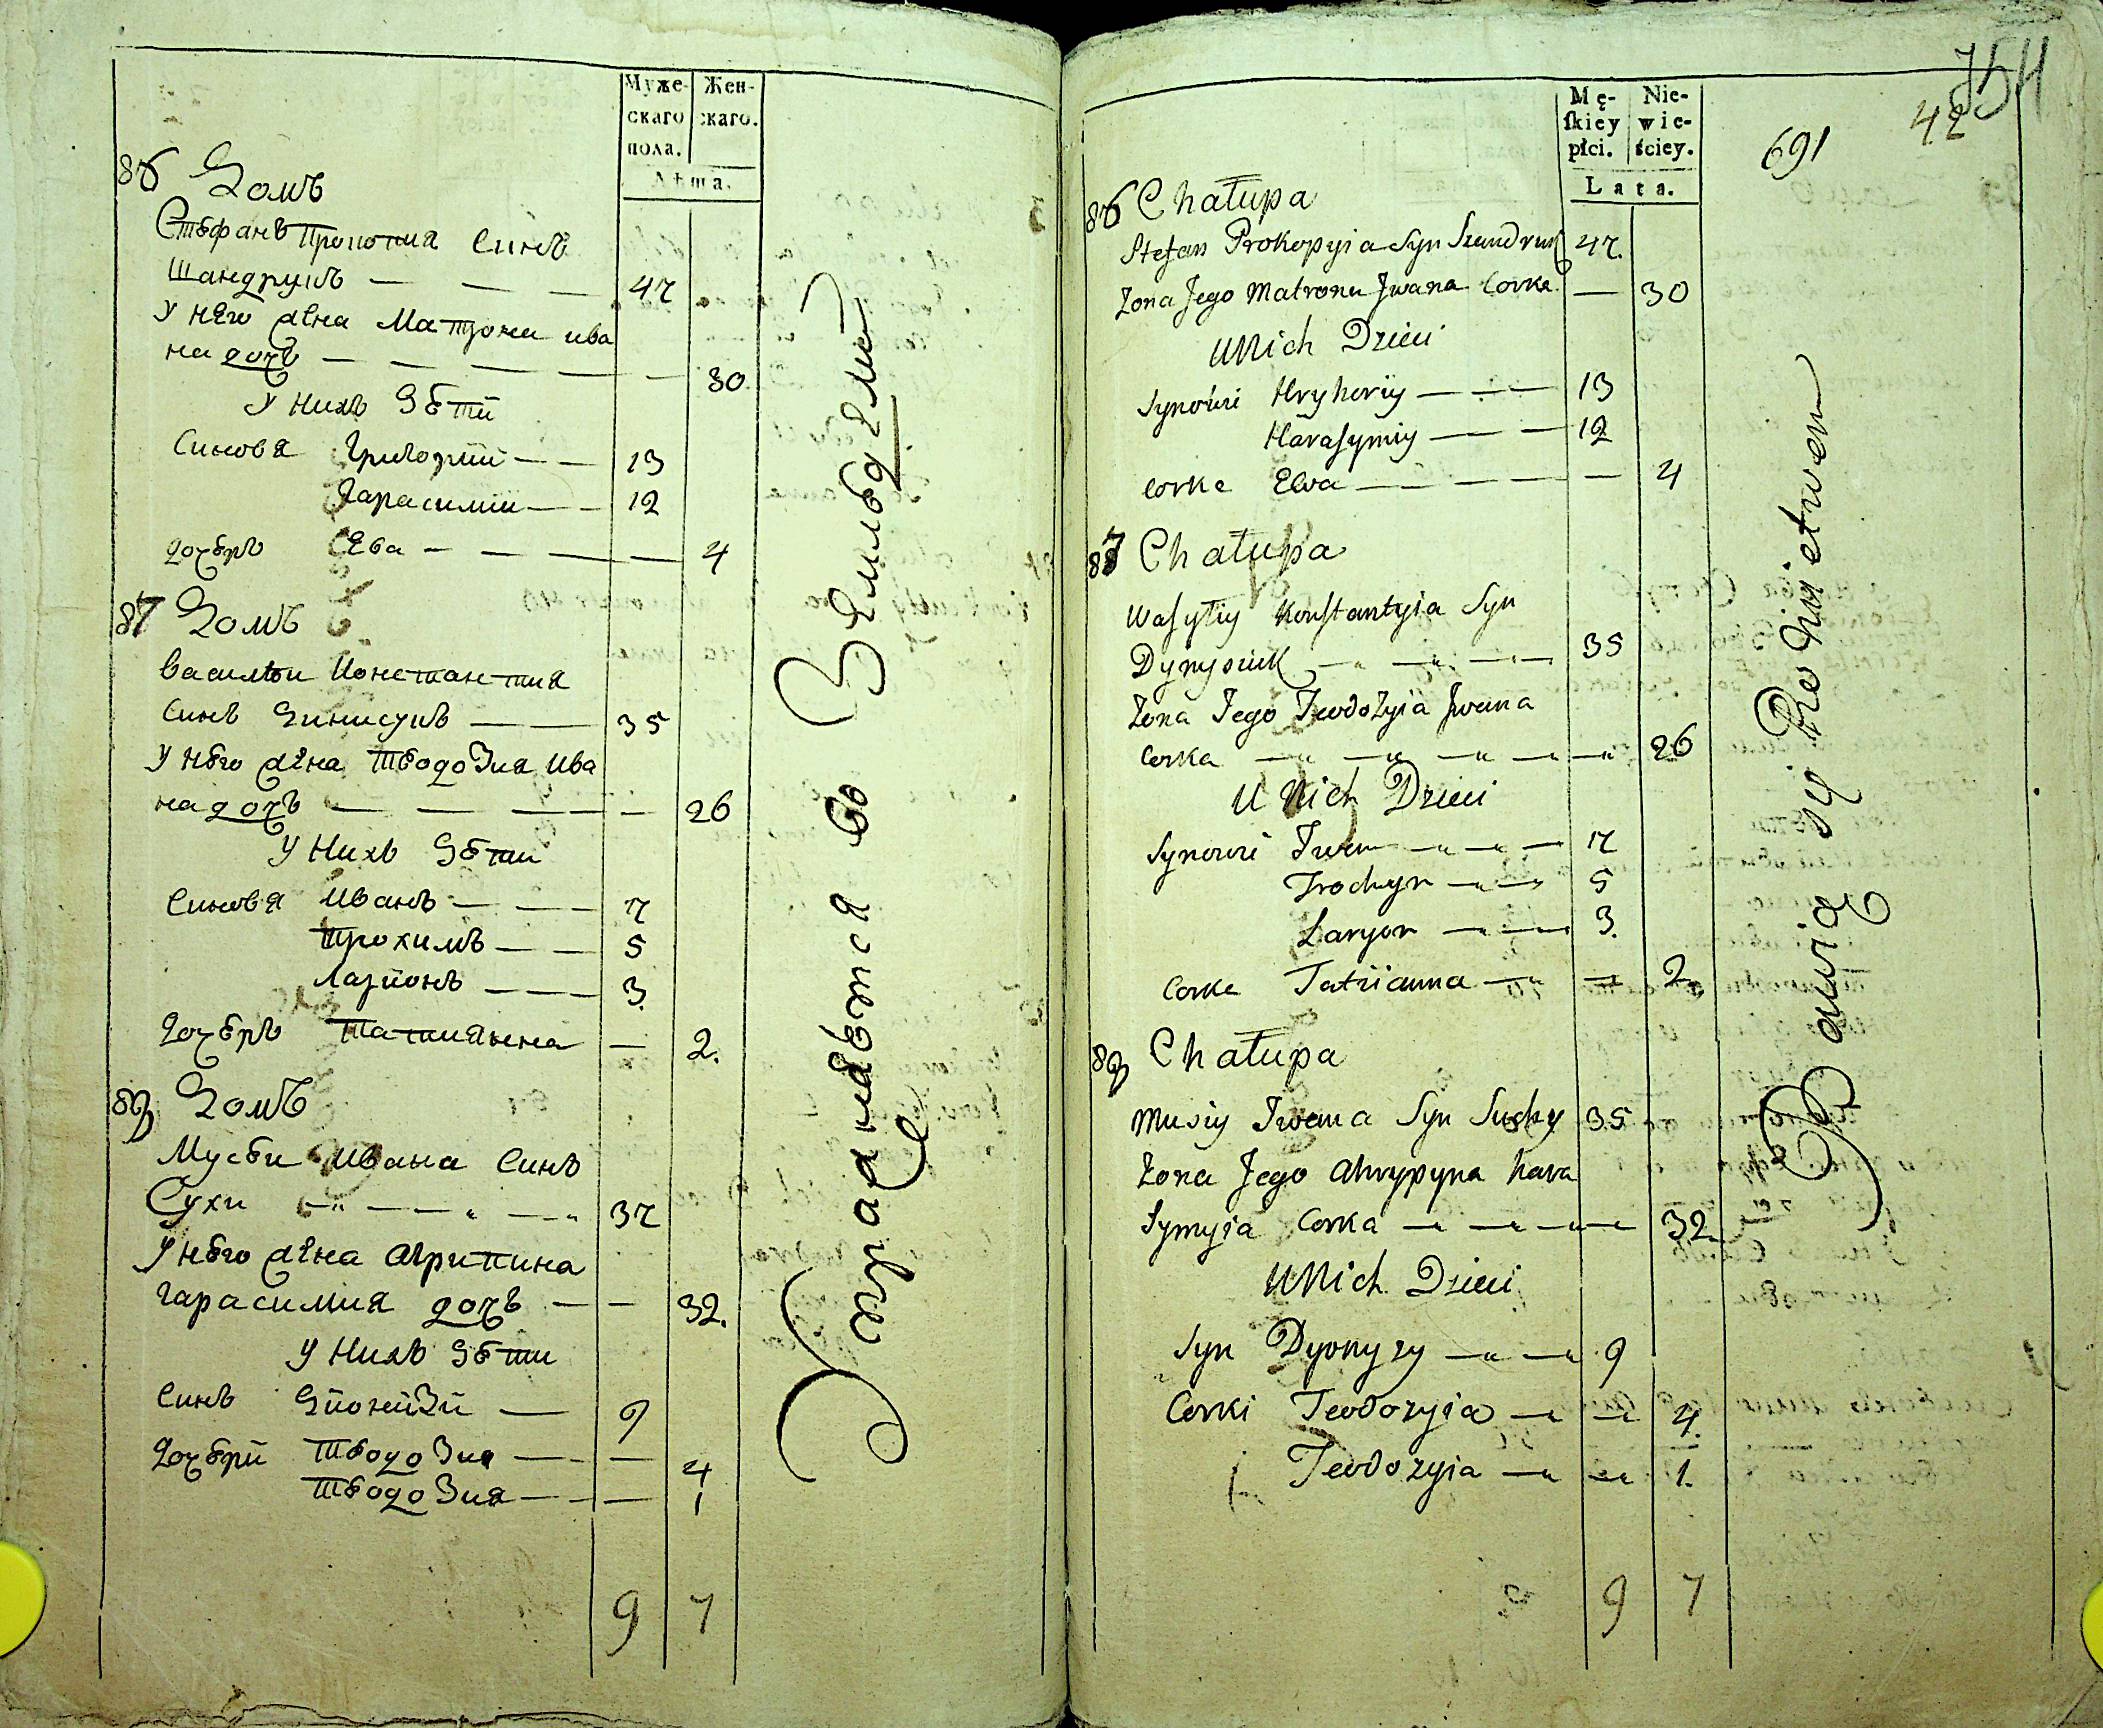 Муже- Жен-
скаго скаго.
пола.
Лѣта.
86 Домъ
Стефанъ Прокопия Синъ
Шандрукъ — — — 47
У него жена Матрона ива
на дочъ — — — — — 30
У нихъ Дѣти
Синовя Григорий — — 13
Гарасимий — — 12
Дочерь Ева — — — — 4
87 Домъ
Василѣи Константия
Синъ Динисукъ — — 35
У него жена Теодозия Ива
на дочъ — — — — — 26
У нихъ Дети
Синовя Иванъ — — — 7
Трохимъ — — 5
Ларионъ — — — 3.
Дочерь Татиянна — 2.
89 Домъ
Мусеи Ивана Синъ
Сухи — — — — 37
У него жена Агрипина
Гарасимия дочъ — — 32.
У нихъ Дети
Синъ Дионизи — 9
Дочери Теодозия — — — 4
Теодозия — — — 1
9 7
Упражняется въ Земледелии
754
42
691
Mę- Nie-
ſkiey wie-
płci. ściey.
Lata.
86 Chałupa
Stefan Prokopyia Syn Szandruk 47.
Zona Jego Matrona Jwana Corka — 30
U Nich Dzieci
Synowi Hryhoriy — — — 13
Haraſymiy — — — 12
Corka Ewa — — — — — 4
87 Chałupa
Waſyliy Konſtantyia Syn
Dynysiuk — — — 35
Zona Jego Teodozyia Jwana
Corka — — — — — — 26
U Nich Dzieci
Synowi Jwan — — — — 7
Trochym — — 5
Laryon — — — 3.
Corka Tatiianna — — 2.
89 Chałupa
Musiy Jwana Syn Suchy 35
Zona Jego Ahrypyna Hara
Symyia Corka — — — — 32.
U Nich Dzieci
Syn Dyonyzy — — 9
Corki Teodozyia — — 4.
Teodozyia — — 1.
9 7
Bawią się Rolnictwem